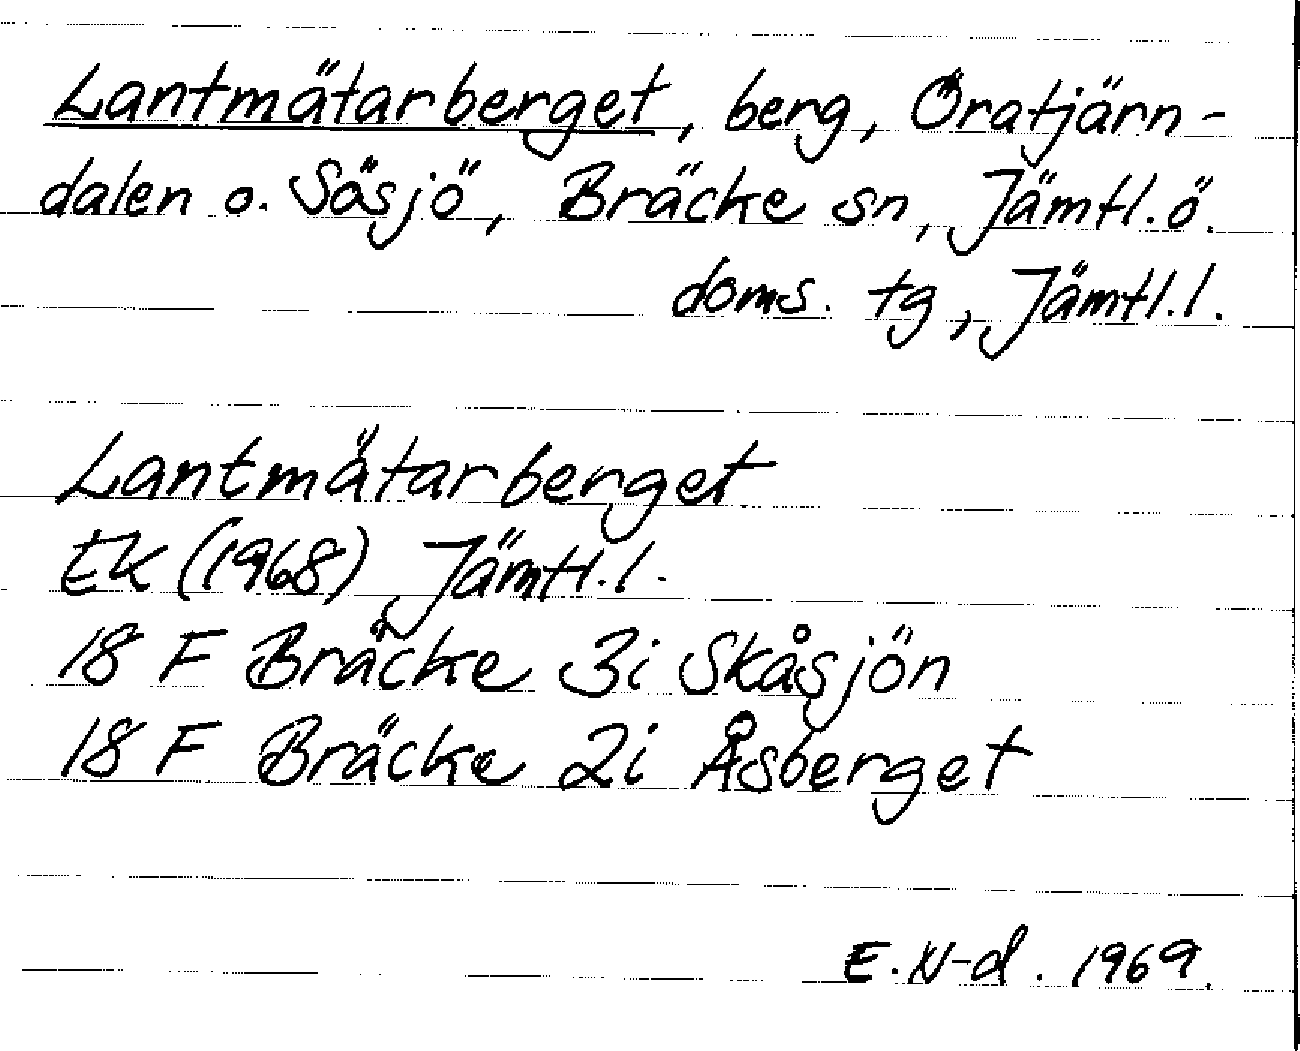 Lantmätarberget, berg, Öratjärn-
dalen o. Sösjö, Bräcke sn, Jämtl. ö.
doms. tg, Jämtl. l.
Lantmätarberget
EK (1968) Jämtl. l.
18 F Bräcke 3i Skåsjön
18 F Bräcke 2i Åsberget
E. N-d. 1969.